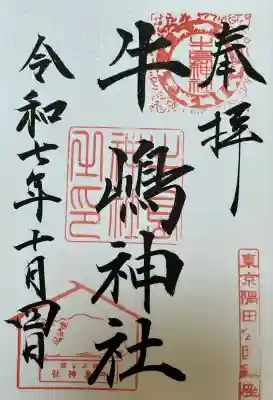 奉拝
牛嶋神社
令和七年十月四日
東京隅田